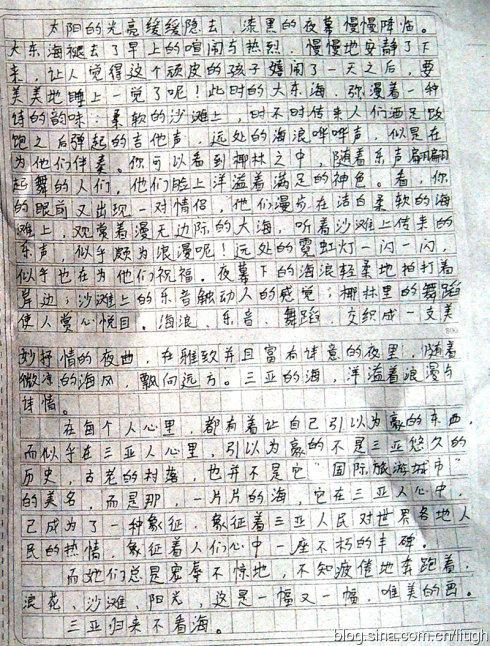 太阳的光亮缓缓隐去，漆黑的夜幕慢慢降临。
大东海褪去了早上的喧闹与热烈，慢慢地安静了下
来，让人觉得这个顽皮的孩子嬉闹了一天之后，要
美美地睡上一觉了呢！此时的大东海，弥漫着一种
诗的韵味：柔软的沙滩上，时不时传来人们酒足饭
饱之后弹起的吉他声，远处的海浪哗哗声，似是在
为他们伴奏。你可以看到椰林之中，随着乐声翩翩
起舞的人们，他们脸上洋溢着满足的神色。看，你
的眼前又出现一对情侣，他们漫步在洁白柔软的海
滩上，观赏着漫无边际的大海，听着沙滩上传来的
乐声，似乎颇为浪漫呢！远处的霓虹灯一闪一闪，
似乎也在为他们祝福。夜幕下的海浪轻柔地拍打着
岸边；沙滩上的乐音触动人的感觉；椰林里的舞蹈
使人赏心悦目。海浪、乐音、舞蹈，交织成一支美
妙抒情的夜曲，在雅致并且富有诗意的夜里，随着
微凉的海风，飘向远方。三亚的海，洋溢着浪漫与
诗情。
在每个人心里，都有着让自己引以为豪的东西，
而似乎在三亚人心里，引以为豪的不是三亚悠久的
历史，古老的村落，也并不是它“国际旅游城市”
的美名，而是那，一片片的海，它在三亚人心中，
已成为了一种象征，象征着三亚人民对世界各地人
民的热情，象征着人们心中一座不朽的丰碑。
而她们总是宠辱不惊地，不知疲倦地奔跑着，
浪花、沙滩、阳光，这是一幅又一幅，唯美的画。
三亚归来不看海。
blog.sina.com.cn/ltugh